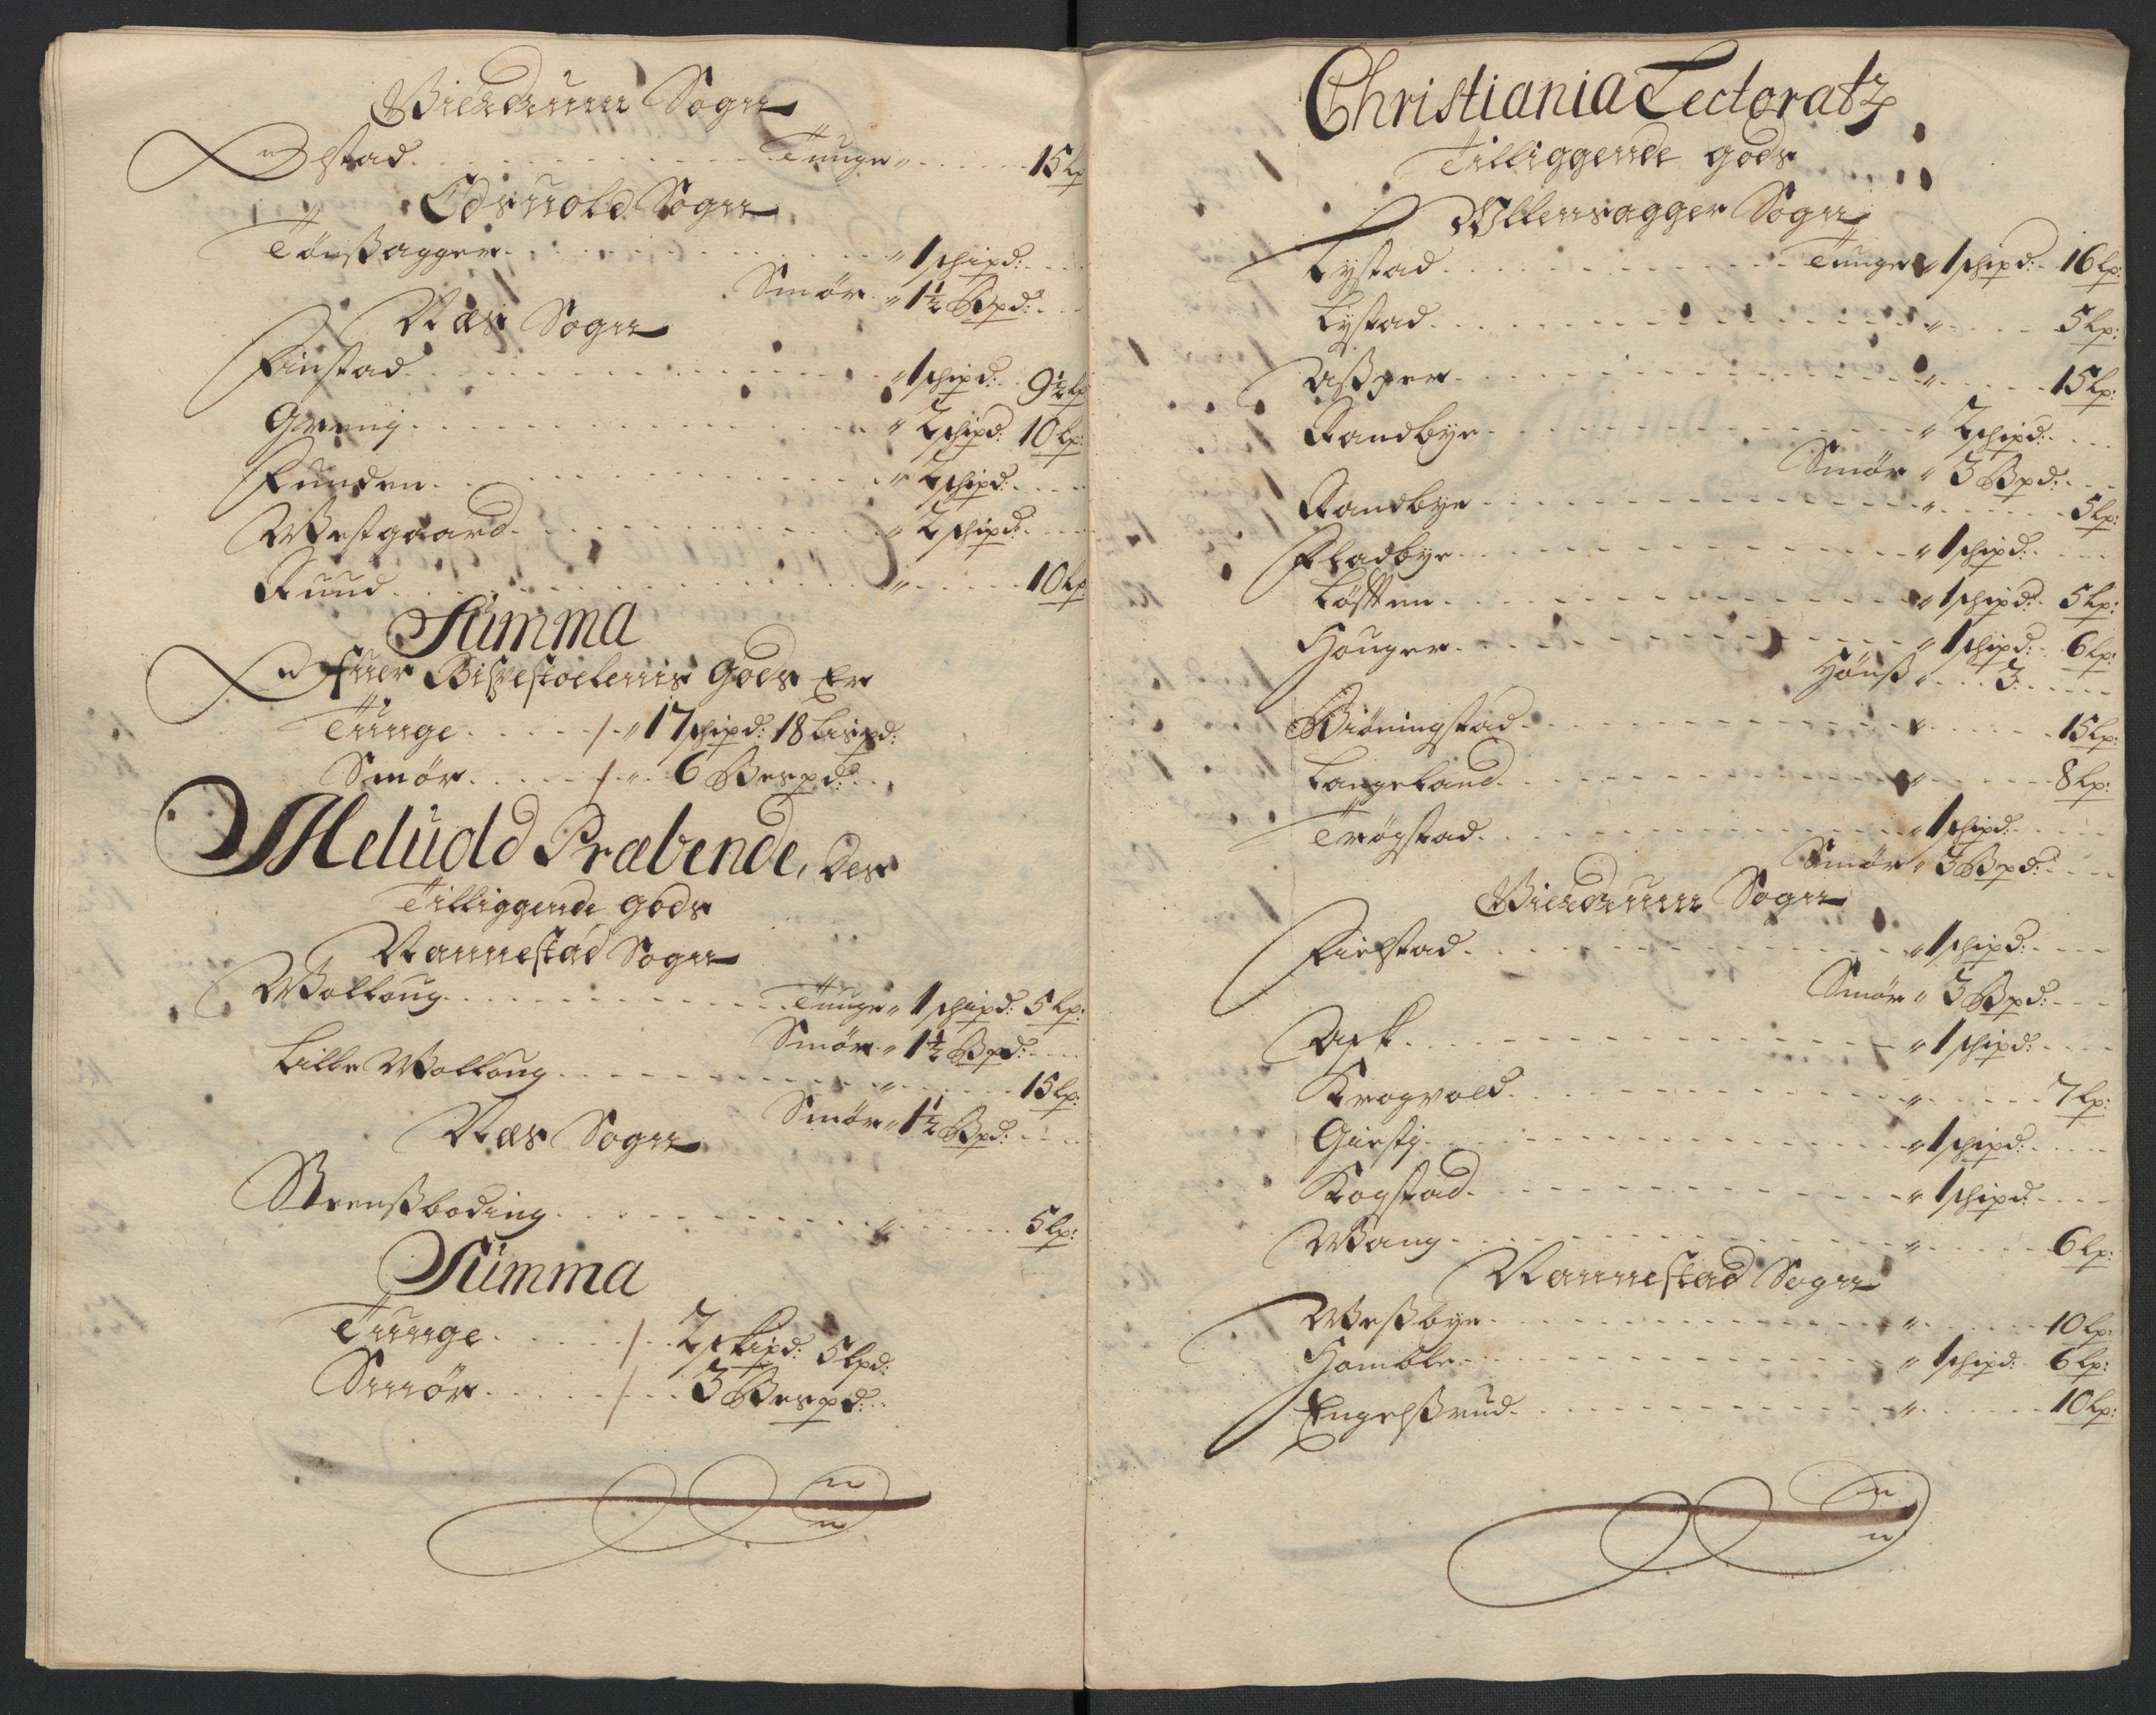 Gierdrumm Sogn
Ølstad . . . Tunge " . . . 15 Lp
Edsuold Sogn
Tønßagger . . . " 1 schipd: . . .
Smør " 1½ Bpd: . .
Næs Sogn
Finstad . . . " 1 schipd: 9½ Lp
Grenij . . . " 2 schipd: 10 Lp:
Funden . . . " 2 schipd: . . .
Westgaard . . . " 2 schipd: . . .
Ruud . . . " . . . 10 Lp
Summa
Ofuer Bispestoelenis Gods Er
Tunge . . . / " 17 schipd: 18 Lispd:
Smør . . . / " 6 Bespd: . .
Meludd Præbende, Des
Tilliggende gods
Nannestad Sogn
Wolloug . . . Tunge " 1 schipd: 5 Lp:
Smør " 1½ Bpd: . .
Lille Wolloug . . . " . . . 15 Lp:
Smør " 1½ Bpd: . . .
Næs Sogn
Strenßboding . . . " . . . 5 Lp:
Summa
Tunge . . . / . . 2 skipd: 5 Lpd:
Smør . . . / . . 3 Bespd: . .
Christiania Lectoratz
Tilliggende gods
Ullensagger Sogn
Lystad . . . Tunge " 1 schipd: 16 Lp:
Lystad . . . " . . . 5 Lp:
Aßper . . . " . . . 15 Lp:
Randbye . . . " 2 schipd: . . .
Smør " 3 Bpd: . . .
Randbye . . . " . . . 5 Lp:
Fladbye . . . " 1 schipd: . . .
Løkken . . . " 1 schipd: 5 Lp:
Houger . . . " 1 schipd: 6 Lp:
Hønß " . . . 3 . . .
Biøningstad . . . " . . . 15 Lp:
Langeland . . . " . . . 8 Lp:
Trøgstad . . . " 1 schipd: . . .
Smør " 3 Bpd: . . .
Gierdrumm Sogn
Fielstad . . . " 1 schipd: . . .
Smør " 3 Bpd: . . .
Ask . . . " 1 schipd: . . .
Krogvold . . . " . . . 7 Lp:
Giestj . . . " 1 schipd: . . .
Kogstad . . . " 1 schipd: . . .
Wang . . . " . . . 6 Lp:
Nannestad Sogn
Weßbye . . . " . . . 10 Lp:
Homble . . . " 1 schipd: 6 Lp:
Engelßrud . . . " . . . 10 Lp: